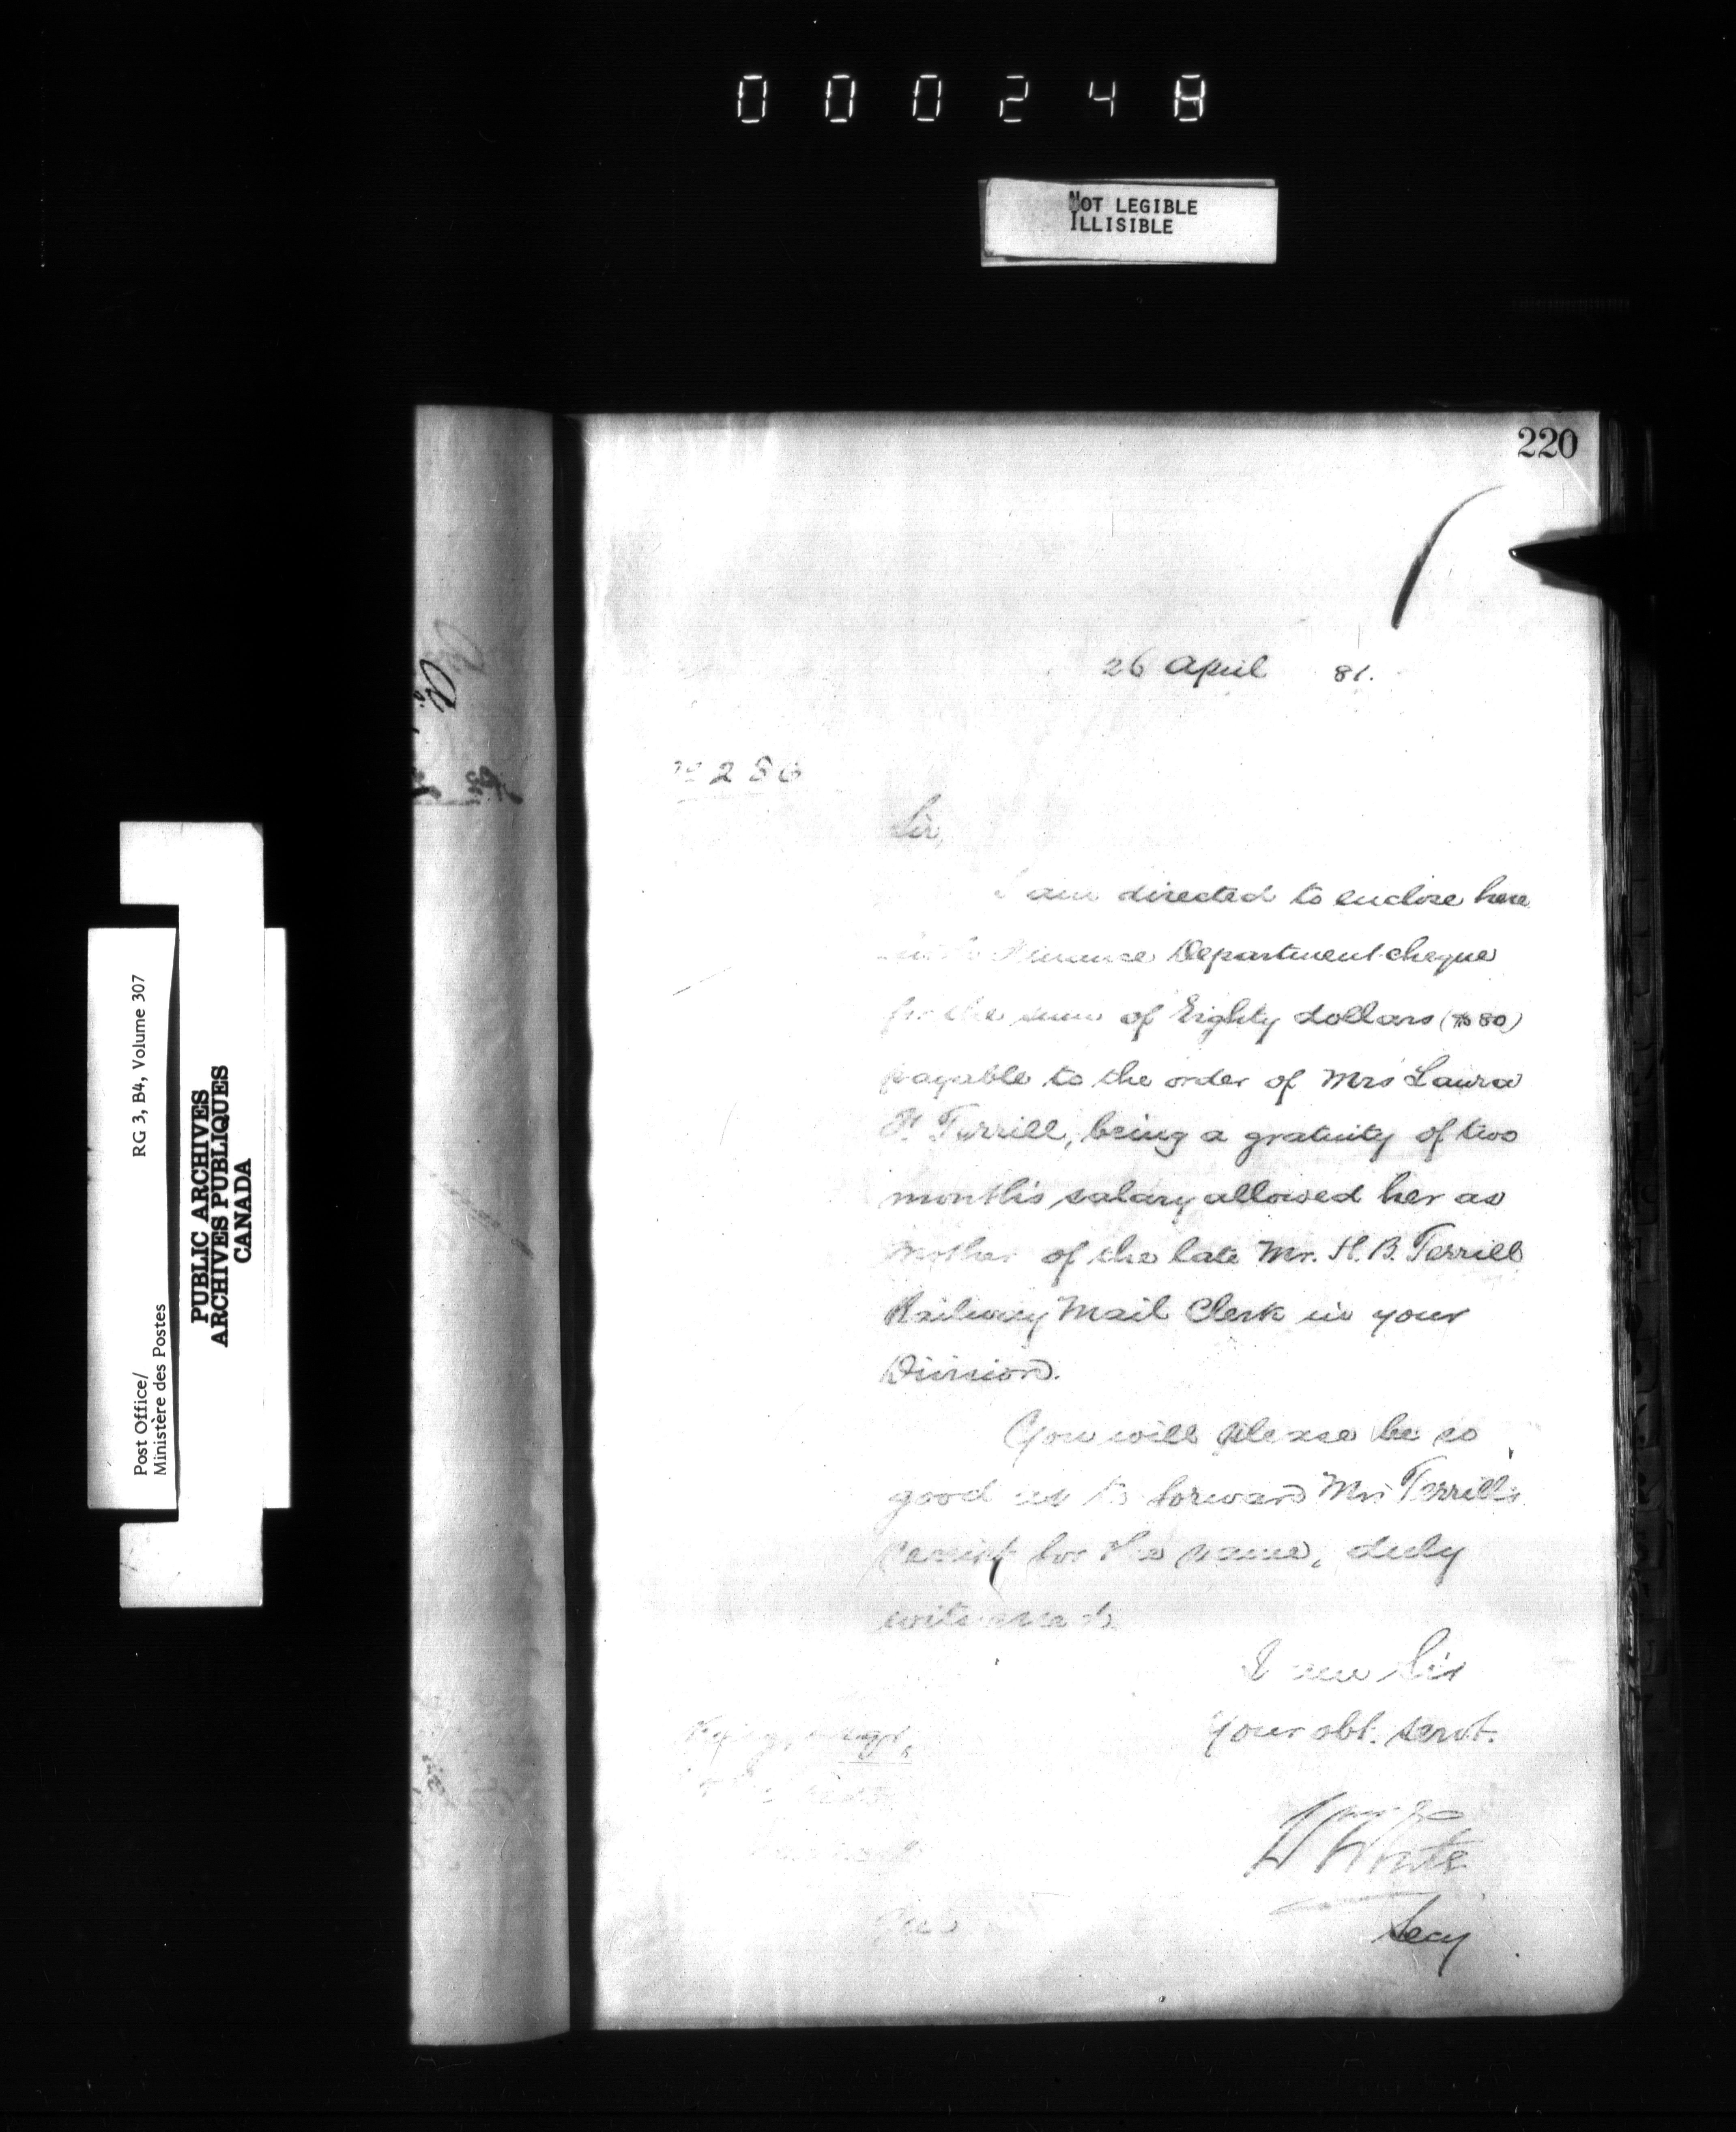 000248
NOT LEGIBLE
ILLISIBLE
220
26 April 81.
Sir,
I am directed to enclose here
with Finance Department cheque
for the sum of Eighty dollars ($80)
payable to the order of Mrs Laura
Terrill, being a gratuity of two
month's salary allowed her as
Mother of the late Mr. H. B. Terrill
Railway Mail Clerk in your
Division.
You will please be so
good as to forward Mrs Terrill's
receipt for the same, duly
witnessed.
I am Sir
Your obt. servt.
White
Secy
Post Office/
Ministère des Postes
RG 3, B4, Volume 307
PUBLIC ARCHIVES
ARCHIVES PUBLIQUES
CANADA